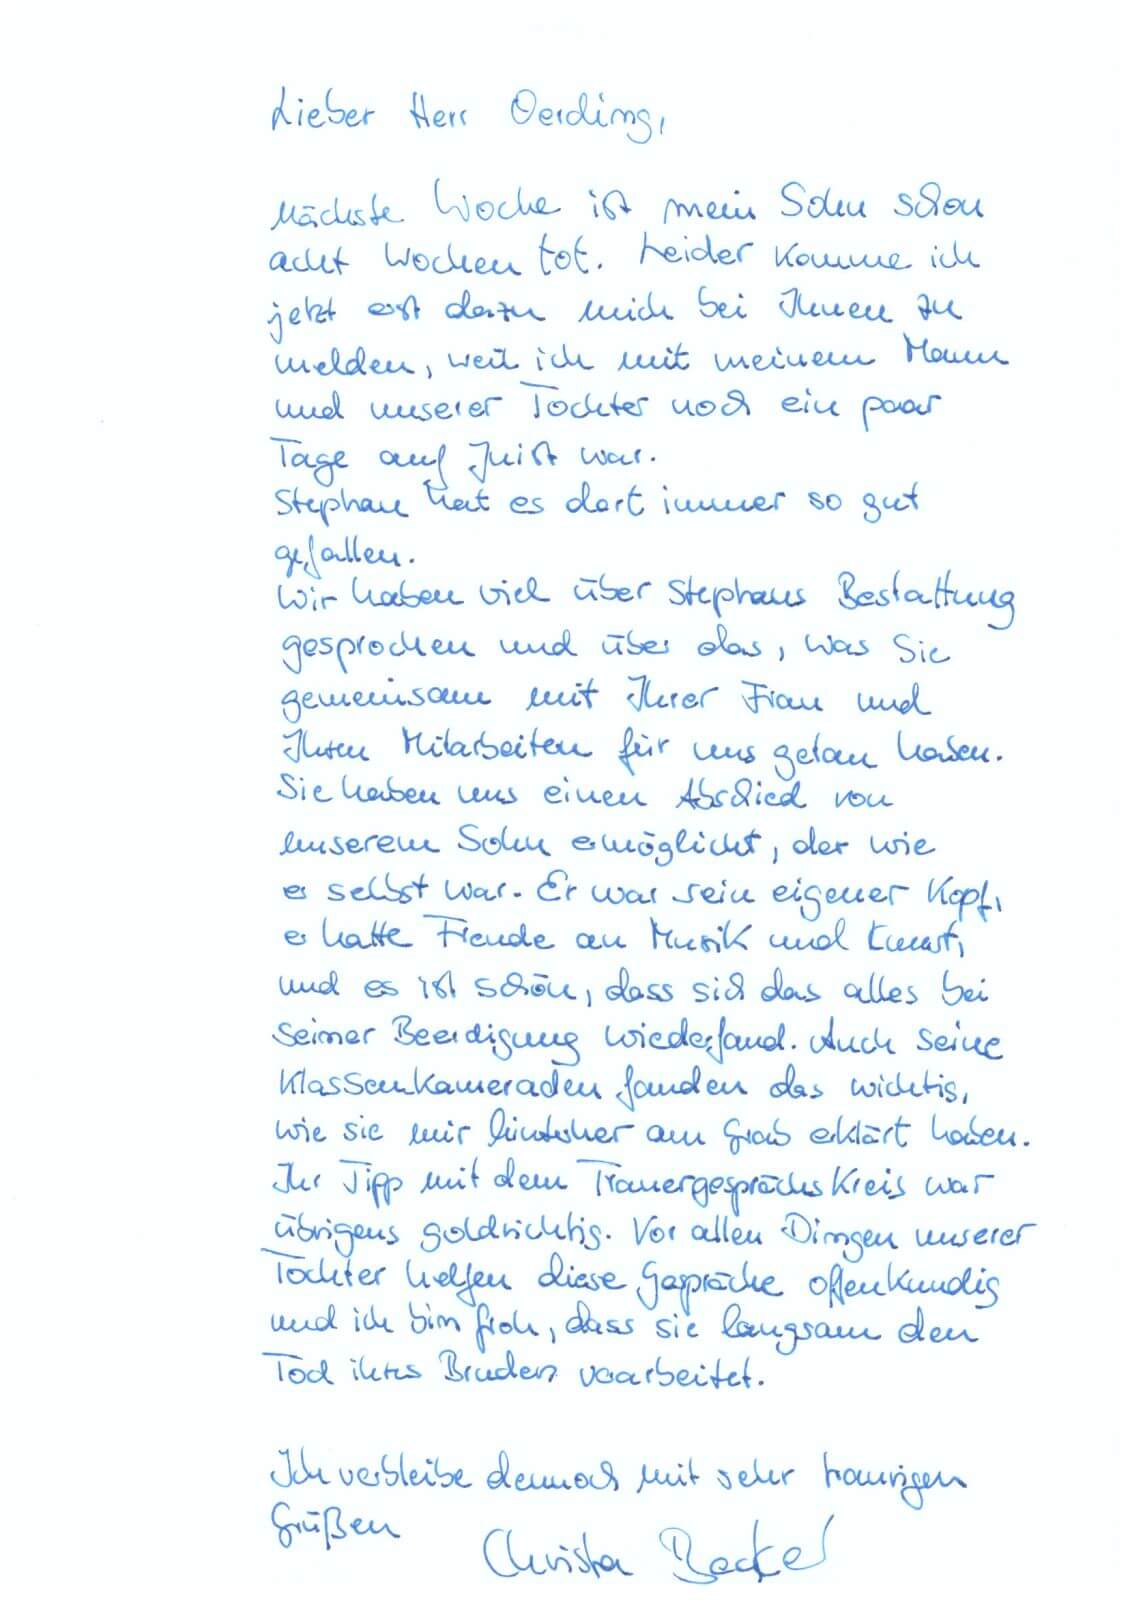 Lieber Herr Oerding,
nächste Woche ist mein Sohn schon
acht Wochen tot. Leider komme ich
jetzt erst dazu mich bei Ihnen zu
melden, weil ich mit meinem Mann
und unserer Tochter noch ein paar
Tage auf Juist war.
Stephan hat es dort immer so gut
gefallen.
Wir haben viel über Stephans Bestattung
gesprochen und über das, was Sie
gemeinsam mit Ihrer Frau und
Ihren Mitarbeiten für uns getan haben.
Sie haben uns einen Abschied von
unserem Sohn ermöglicht, der wie
er selbst war. Er war sein eigener Kopf,
er hatte Freude an Musik und Kunst,
und es ist schön, dass sich das alles bei
seiner Beerdigung wiederfand. Auch seine
Klassenkameraden fanden das wichtig,
wie sie mir hinterher am Grab erklärt haben.
Ihr Tipp mit dem Trauergesprächskreis war
übrigens goldrichtig. Vor allen Dingen unserer
Tochter helfen diese Gespräche offenkundig
und ich bin froh, dass sie langsam den
Tod ihres Bruders verarbeitet.
Ich verbleibe dennoch mit sehr traurigen
Grüßen
Christa Becker